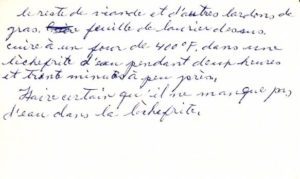 le reste de viande et d'autres lardons de
gras. feuille de laurier dessus.
cuire à un four de 400°F. dans une
lèchefrite d'eau pendant deux heures
et trent minutes à peu près.
Faire certain qu'il ne manque pas
d'eau dans la lèchefrite.